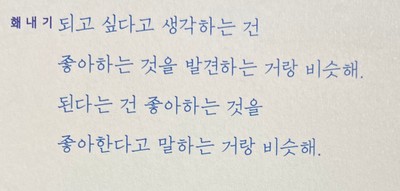 홰내기 되고 싶다고 생각하는 건
좋아하는 것을 발견하는 거랑 비슷해.
된다는 건 좋아하는 것을
좋아한다고 말하는 거랑 비슷해.